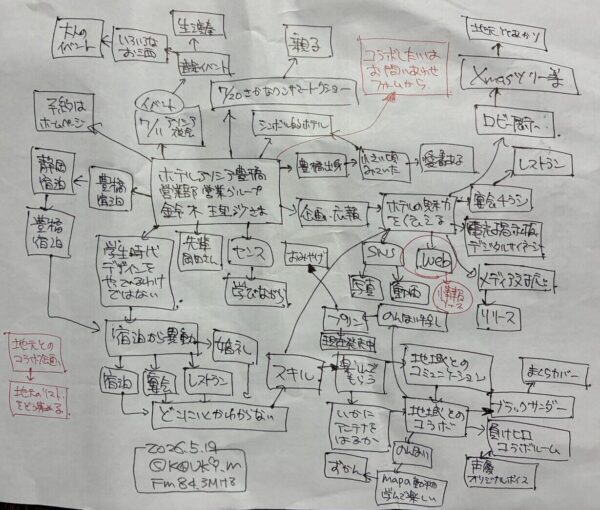 大人の
イベント
いろいろな
お酒
生演奏
音楽イベント
親子
コラボしたいは
お問い合わせ
フォームから
地元とのあかり
Xmasツリー等
ロビー展示
レストラン
予約は
ホームページ
イベント
7/11
7/20 さかなクンサマートークショー
シンボル的ホテル
静岡
宿泊
豊橋
宿泊
豊橋
宿泊
ホテルアソシア豊橋
営業部 営業グループ
豊橋出身
小さい頃
みていた
企画・広報
ホテルの魅力
を伝える
宴会チラシ
デジタルサイネージ
メディア対応
リリース
学生時代
デザインを
やっていたわけ
ではない
先輩
岡田さん
センス
学びながら
おみやげ
SNS
web
写真
動画
情報
ベース
プリン
現在発売中
のんほいと
宿泊から異動
婚礼
宿泊
宴会
レストラン
どこにいくかわからない
スキル
楽しんで
もらう
いかに
アンテナを
はるか
地域との
コミュニケーション
地域との
コラボ
まくらカバー
ブラックサンダー
負けヒロ
コラボルーム
声優
オリジナルボイス
のんほい
ずかん
mapa動物
学んで楽しい
地元との
コラボ企画
2026.5.19
©KOUK9.m
Fm84.3MHz